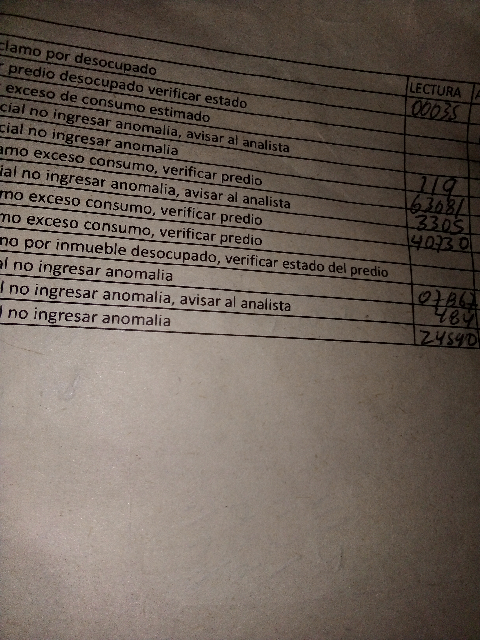 clamo por desocupado
r predio desocupado verificar estado LECTURA
r exceso de consumo estimado 00035
cial no ingresar anomalia, avisar al analista
cial no ingresar anomalia
amo exceso consumo, verificar predio
ial no ingresar anomalia, avisar al analista 119
mo exceso consumo, verificar predio 63081
mo exceso consumo, verificar predio 3305
no por inmueble desocupado, verificar estado del predio 40730
al no ingresar anomalia
l no ingresar anomalia, avisar al analista 484
l no ingresar anomalia 24590